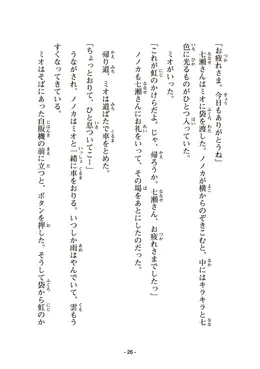 「お疲れさま。今日もありがとうね」
七瀬さんはミオに袋を渡した。ノノカが横からのぞきこむと、中にはキラキラと七
色に光るものがひとつ入っていた。
ミオがいった。
「これが虹のかけらだよ。じゃ、帰ろうか。七瀬さん、お疲れさまでしたっ」
ノノカも七瀬さんにお礼をいって、その場をあとにしたのだった。
帰り道、ミオは道ばたで車をとめた。
「ちょっとおりて、ひと息ついてこー」
うながされ、ノノカはミオと一緒に車をおりる。いつしか雨はやんでいて、雲もう
すくなってきている。
ミオはそばにあった自販機の前に立つと、ボタンを押した。そうして袋から虹のか
- 26 -